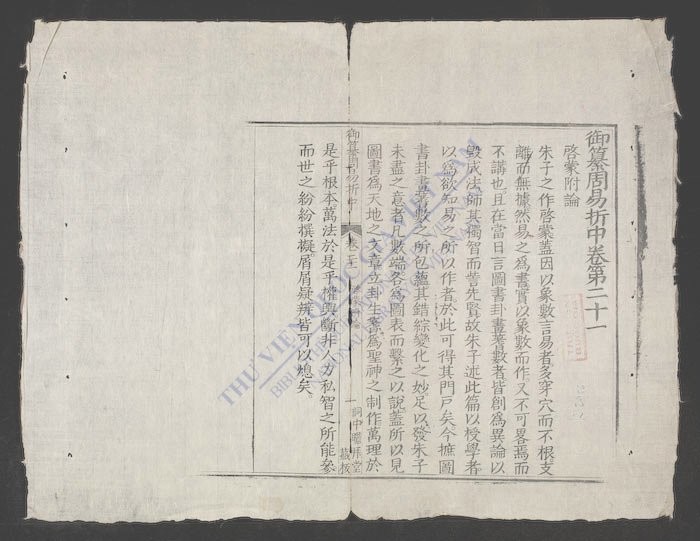 御纂周易折中卷第二十一
啓蒙附論
朱子之作啓蒙蓋因以象數言易者多穿穴而不根支
離而無據然易之爲書實以象數而作又不可畧焉而
不講也且在當日言圖書卦畫蓍數者皆創爲異論以
毁成法師其獨智而訾先賢故朱子述此篇以授學者
以爲欲知易之所以作者於此可得其門戶矣今摭圖
書卦畫蓍數之所包蘊其錯綜變化之妙足以發朱子
未盡之意者凡數端各爲圖表而繫之以說蓋所以見
圖書爲天地之文章立卦生蓍爲聖神之制作萬理於
御纂周易折中 卷二十一 一
是乎根本萬法於是乎權輿斷非人力私智之所能參
而世之紛紛撰擬屑屑疑辨皆可以熄矣
THƯ VIỆN QUỐC GIA VIỆT NAM